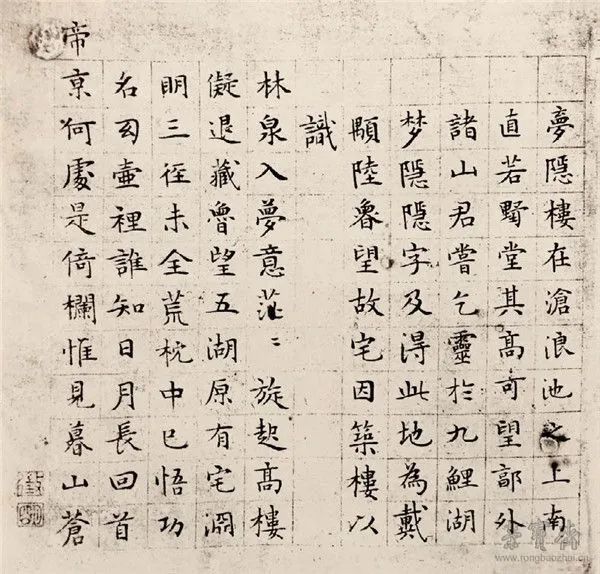 夢隱樓在滄浪池之上南
直若墅堂其高可望郭外
諸山君嘗乞靈於九鯉湖
梦隱隱字及淂此地為戴
顒陸魯望故宅因築樓以
識
林泉入夢意茫〻旋起高樓
儗退藏魯望五湖原有宅淵
明三徑未全荒枕中已悟功
名幻壺裡誰知日月長回首
帝京何處是倚欄惟見暮山蒼
徵明
榮寶齋
www.rongbaozhai.cn